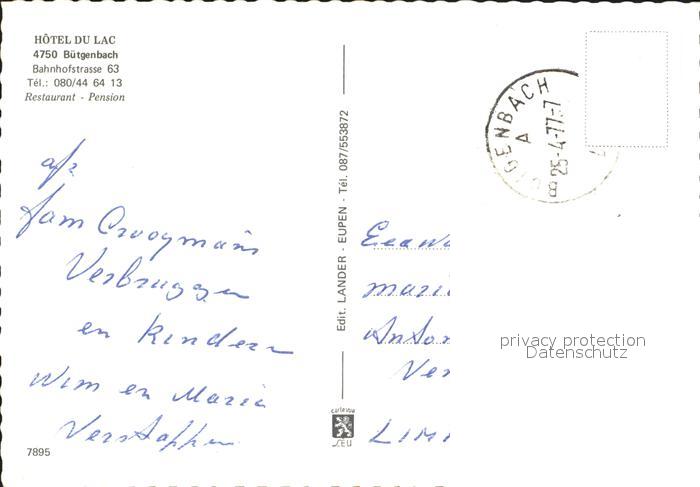 HÔTEL DU LAC
4750 Bütgenbach
Bahnhofstrasse 63
Tél.: 080/44 64 13
Restaurant - Pension
afz
fam Crooymans
Verbruggen
en kinderen
Wim en Maria
Verstappen
7895
Edit. LANDER - EUPEN - Tél. 087/553872
BÜTGENBACH
A
25-4-77-7
privacy protection
Datenschutz